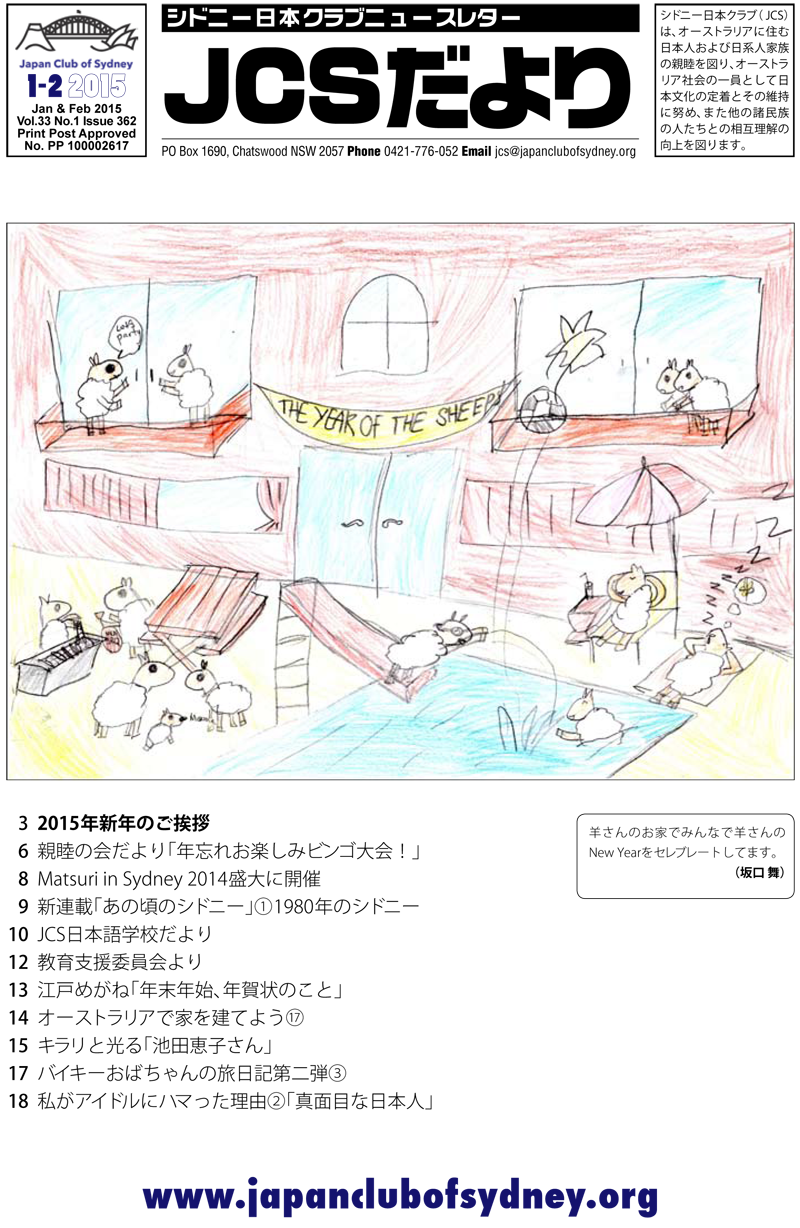 Japan Club of Sydney
1-2 2015
Jan & Feb 2015
Vol.33 No.1 Issue 362
Print Post Approved
No. PP 100002617
シドニー日本クラブニュースレター
JCSだより
PO Box 1690, Chatswood NSW 2057 Phone 0421-776-052 Email jcs@japanclubofsydney.org
シドニー日本クラブ(JCS)
は、オーストラリアに住む
日本人および日系人家族
の親睦を図り、オーストラ
リア社会の一員として日
本文化の定着とその維持
に努め、また他の諸民族
の人たちとの相互理解の
向上を図ります。
Lets
party
THE YEAR OF THE SHEEPS
z z z z z z z z
3 2015年新年のご挨拶
6 親睦の会だより「年忘れお楽しみビンゴ大会!」
8 Matsuri in Sydney 2014盛大に開催
9 新連載「あの頃のシドニー」①1980年のシドニー
10 JCS日本語学校だより
12 教育支援委員会より
13 江戸めがね「年末年始、年賀状のこと」
14 オーストラリアで家を建てよう⑰
15 キラリと光る「池田恵子さん」
17 バイキーおばちゃんの旅日記第二弾③
18 私がアイドルにハマった理由②「真面目な日本人」
羊さんのお家でみんなで羊さんの
New Yearをセレブレートしてます。
(坂口 舞)
www.japanclubofsydney.org